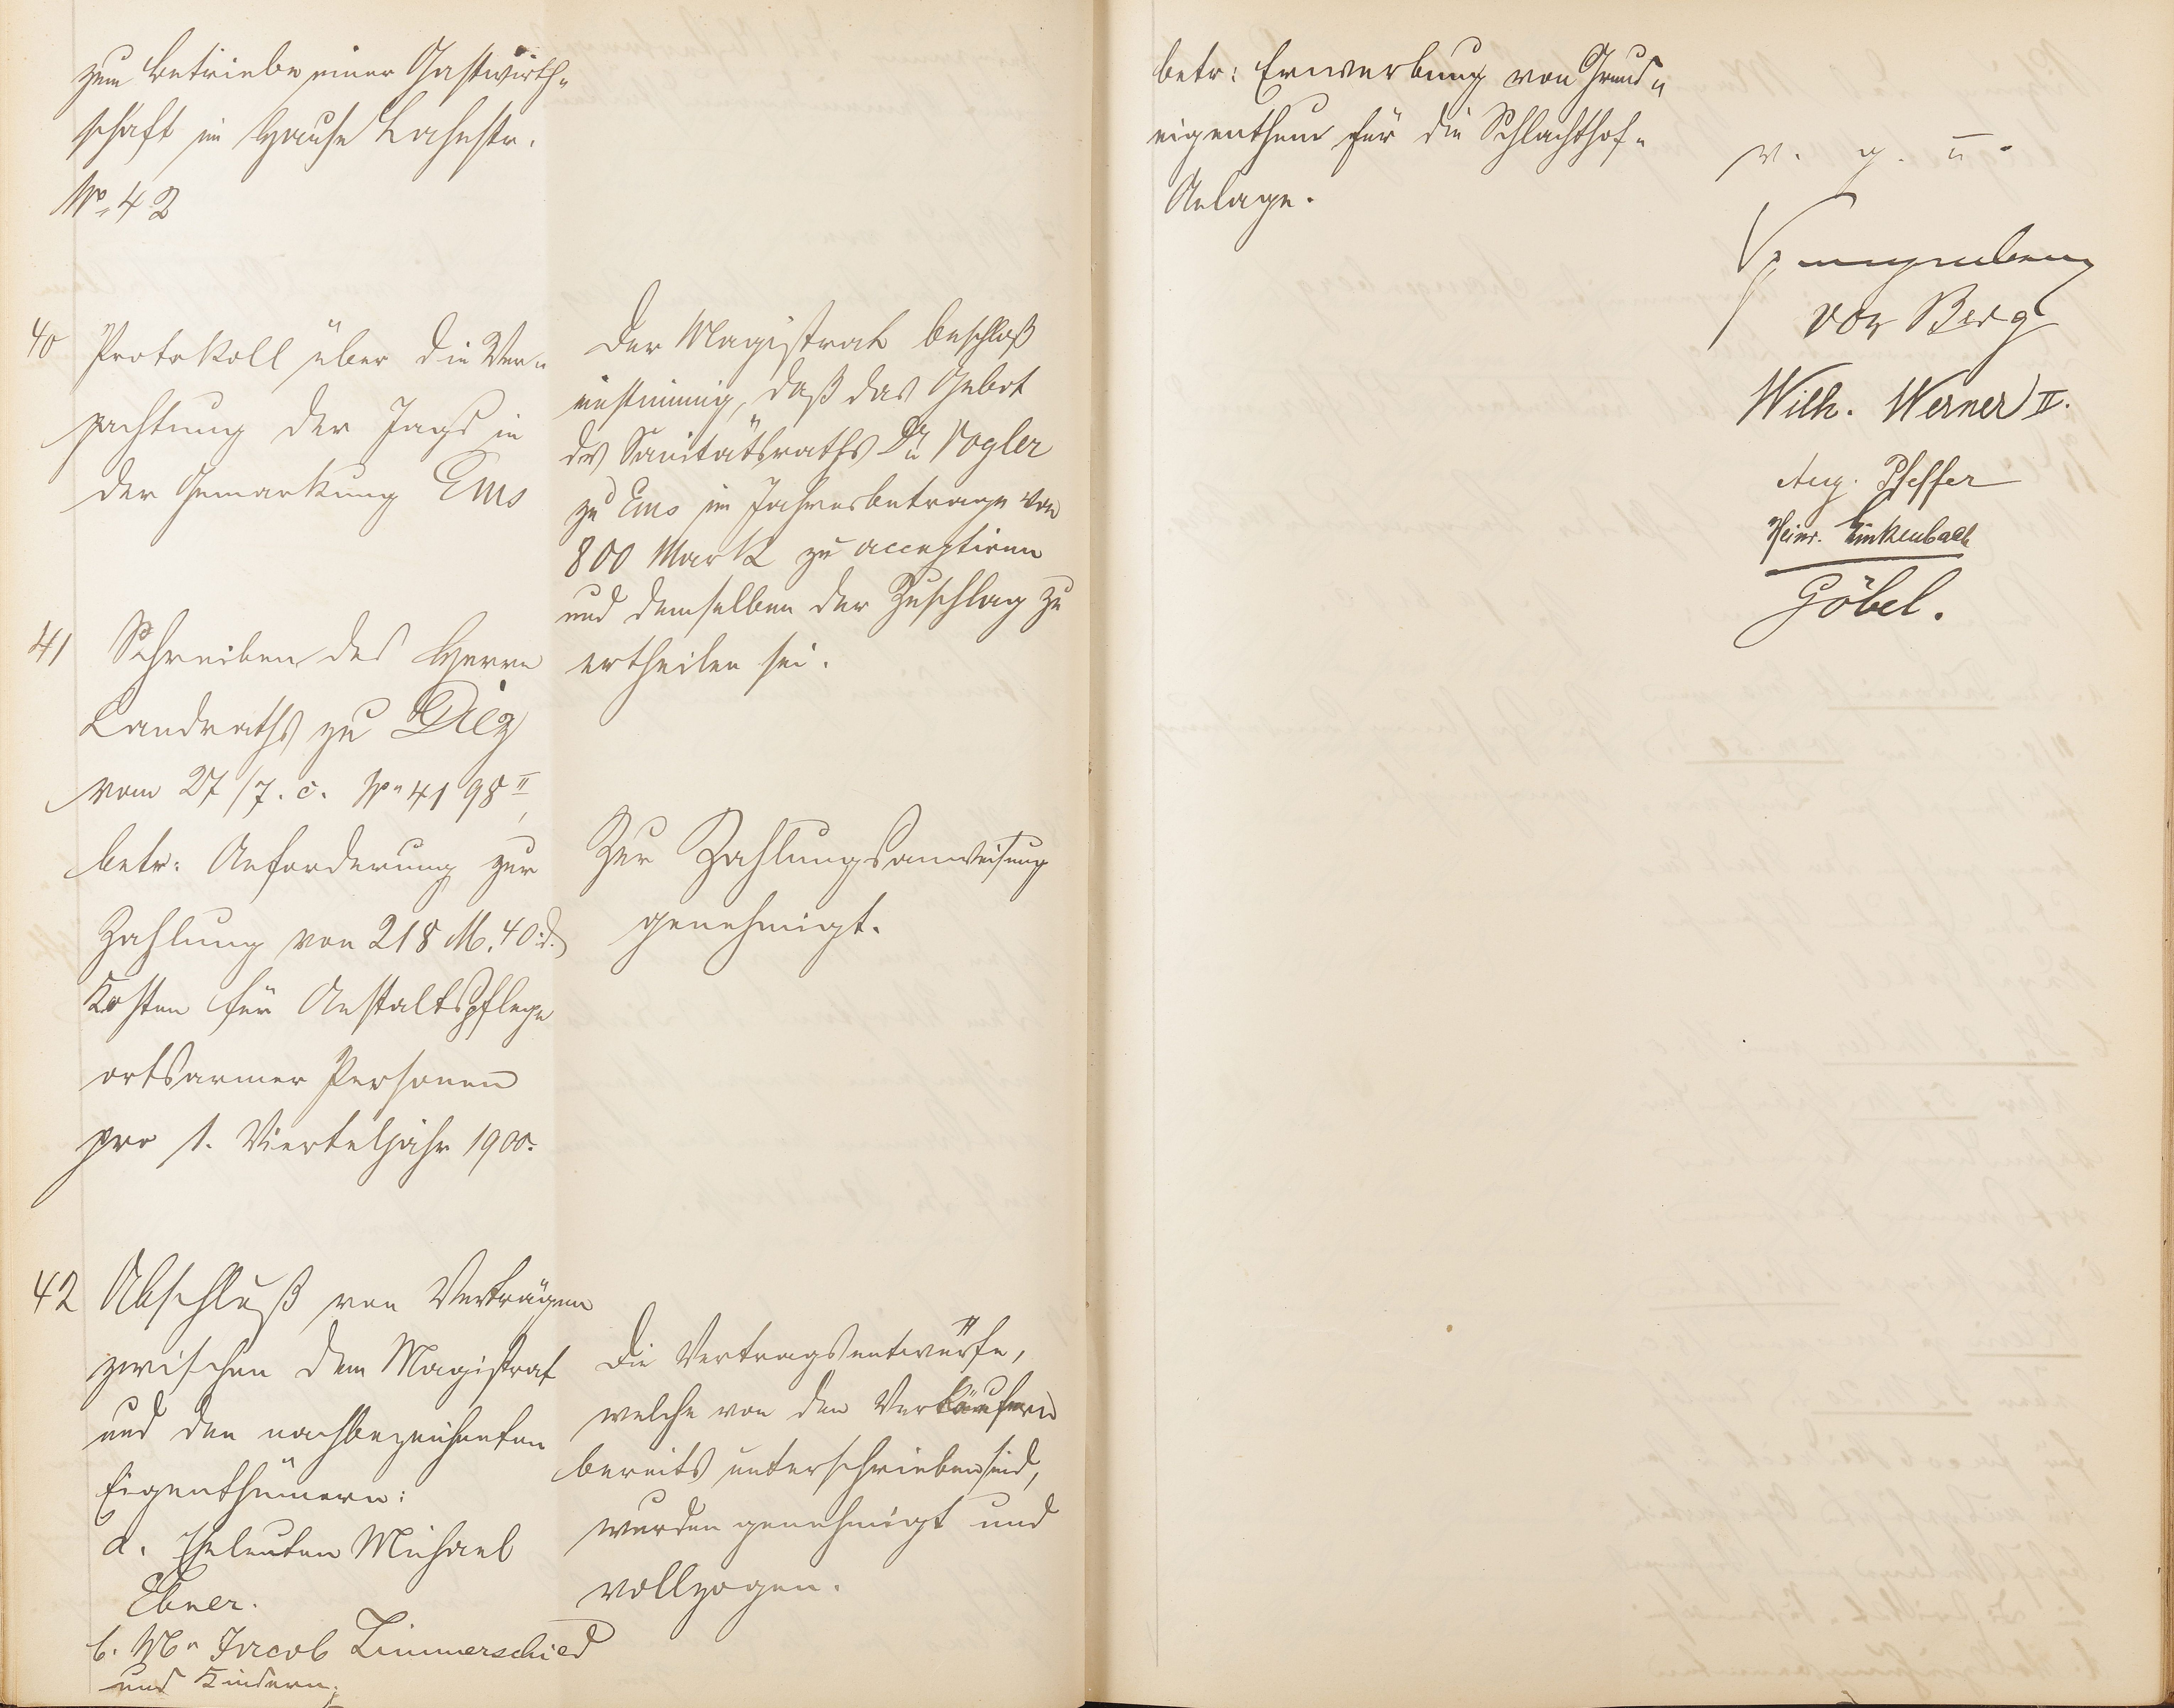 zum Betriebe einer Gastwirth-
schaft im Hause Lahnstr.
No. 42
40 Protokoll über die Ver-
pachtung der Jagd in
der Gemarkung Ems
Der Magistrat beschloß
einstimmig, daß das Gebot
des Sanitätsraths Dr. Vogler
zu Ems im Jahresbetrage von
800 Mark zu acceptiren
und demselben der Zuschlag zu
ertheilen sei.
41 Schreiben des Herrn
Landraths zu Diez
vom 27/7. c. No. 4198 II,
betr: Anforderung zur
Zahlung von 218 M. 40 d.
Kosten für Anstaltspflege
ortsarmer Personen
pro 1. Vierteljahr 1900.
Zur Zahlungsanweisung
genehmigt.
42 Abschluß von Verträgen
zwischen dem Magistrat
und den nachbezeichneten
Eigenthümern:
a. Eheleuten Michael
Ebner.
b. Jacob Linnerschied
und Kindern,
Die Vertragsentwürfe,
welche von den Verkäufern
bereits unterschrieben sind,
wurden genehmigt und
vollzogen.
betr: Erwerbung von Grund-
eigenthum für die Schlachthof-
Anlage.
v. g. u.
Spangenberg
von Berg
Wilh. Werner II.
Aug. Pfeffer
Heinr. Linkenbach
Göbel.